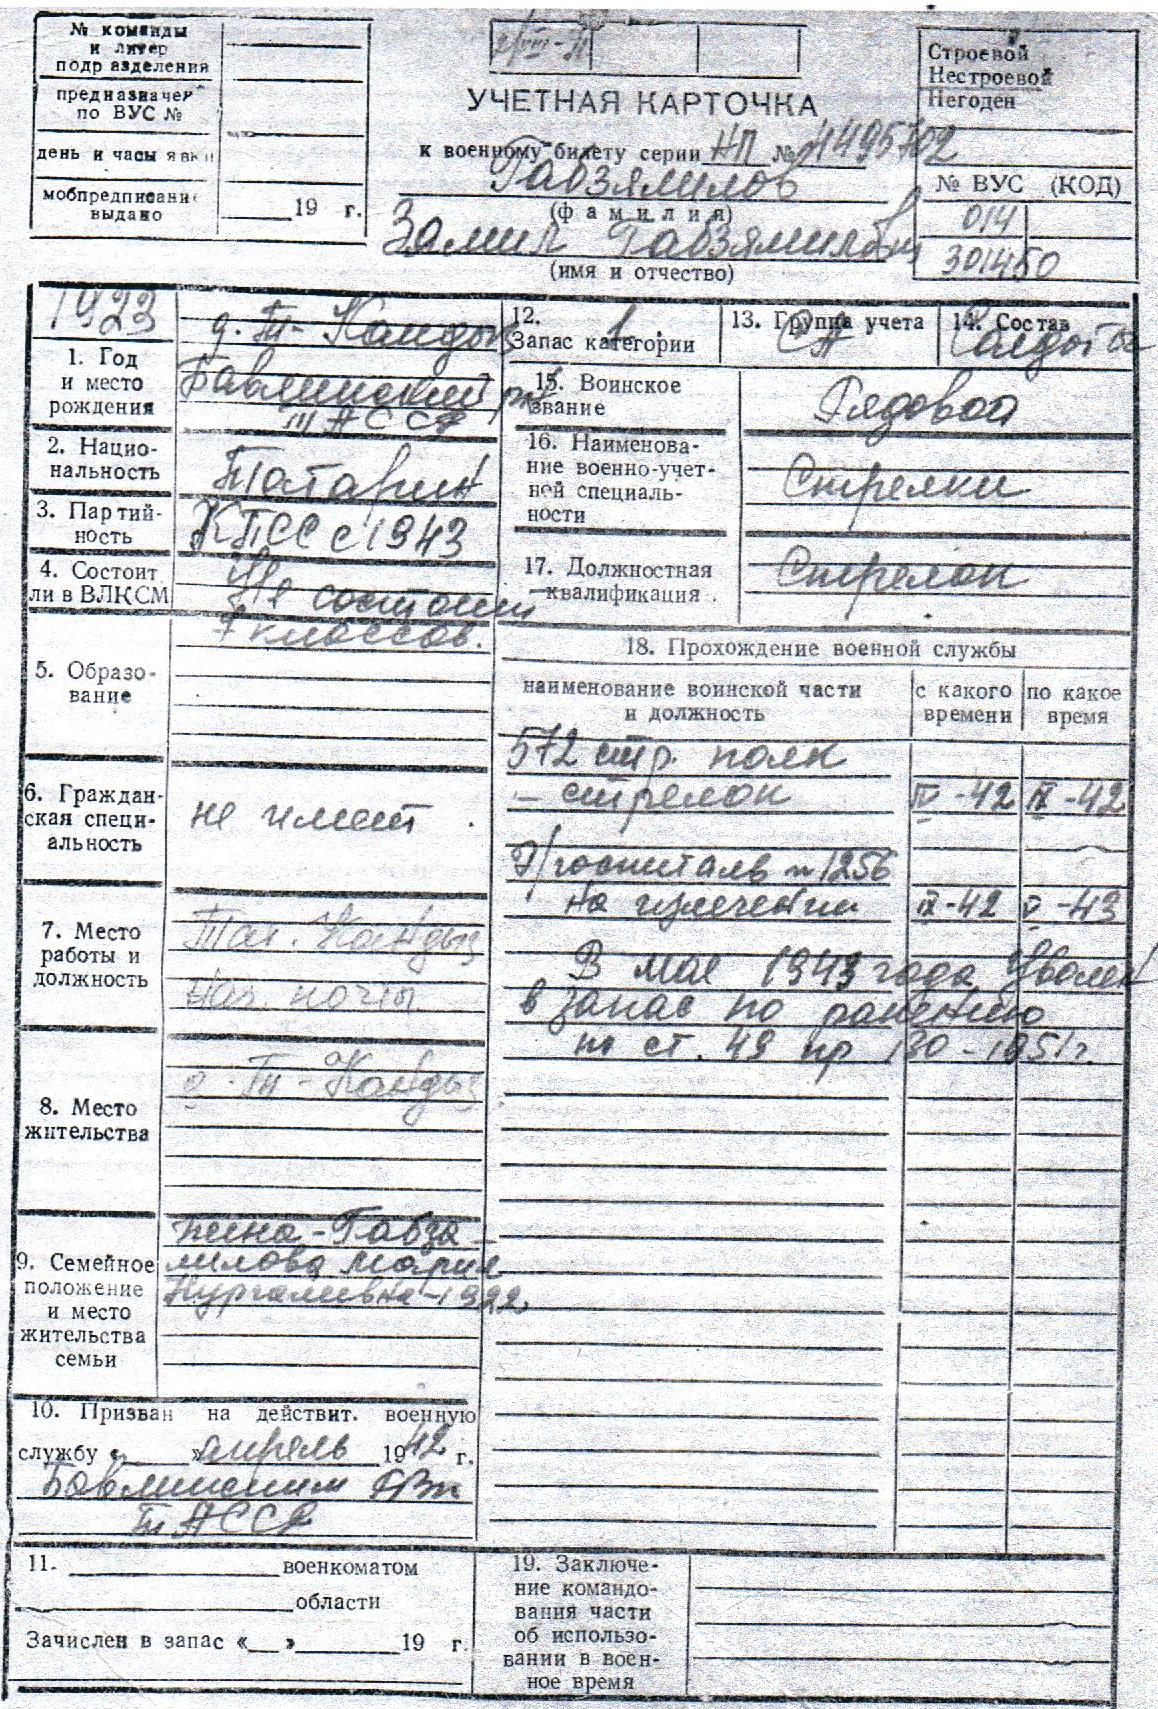 № команды
и литер
подразделения
предназначен
по ВУС №
день и часы явки
мобпредписание
выдано
19 г.
УЧЕТНАЯ КАРТОЧКА
к военному билету серии НП № 4495702
Габзямилов
(фамилия)
Замил Габзямилович
(имя и отчество)
Строевой
Нестроевой
Негоден
№ ВУС (КОД)
014
301450
1923
1. Год
и место
рождения
д. Т-Кандыз
Бавлинский р-н
ТАССР
2. Нацио-
нальность
Татарин
3. Партий-
ность
КПСС с 1943
4. Состоит
ли в ВЛКСМ
Не состоит
5. Образо-
вание
7 классов.
6. Граждан-
ская специ-
альность
не имеет
7. Место
работы и
должность
Тат. Кандыз
Нач. почты
8. Место
жительства
д. Т-Кандыз
9. Семейное
положение
и место
жительства
семьи
жена - Габзя-
милова Мария
Нургалиевна-1922
10. Призван на действит. военную
службу « » апрель 1942 г.
Бавлинским РВк
ТАССР
11. военкоматом
области
Зачислен в запас « » 19 г.
12.
Запас категории
1
13. Группа учета
СА
14. Состав
Солдаты
15. Воинское
звание
Рядовой
16. Наименова-
ние военно-учет-
ной специаль-
ности
Стрелки
17. Должностная
квалификация
Стрелок
18. Прохождение военной службы
наименование воинской части
и должность
с какого
времени
по какое
время
572 стр. полк
- стрелок IV-42 IX-42
Э/госпиталь № 1256
на излечении IX-42 V-43
В мае 1943 года уволен
в запас по ранению
по ст. 49 пр 130-1951г.
19. Заключе-
ние командо-
вания части
об использо-
вании в воен-
ное время